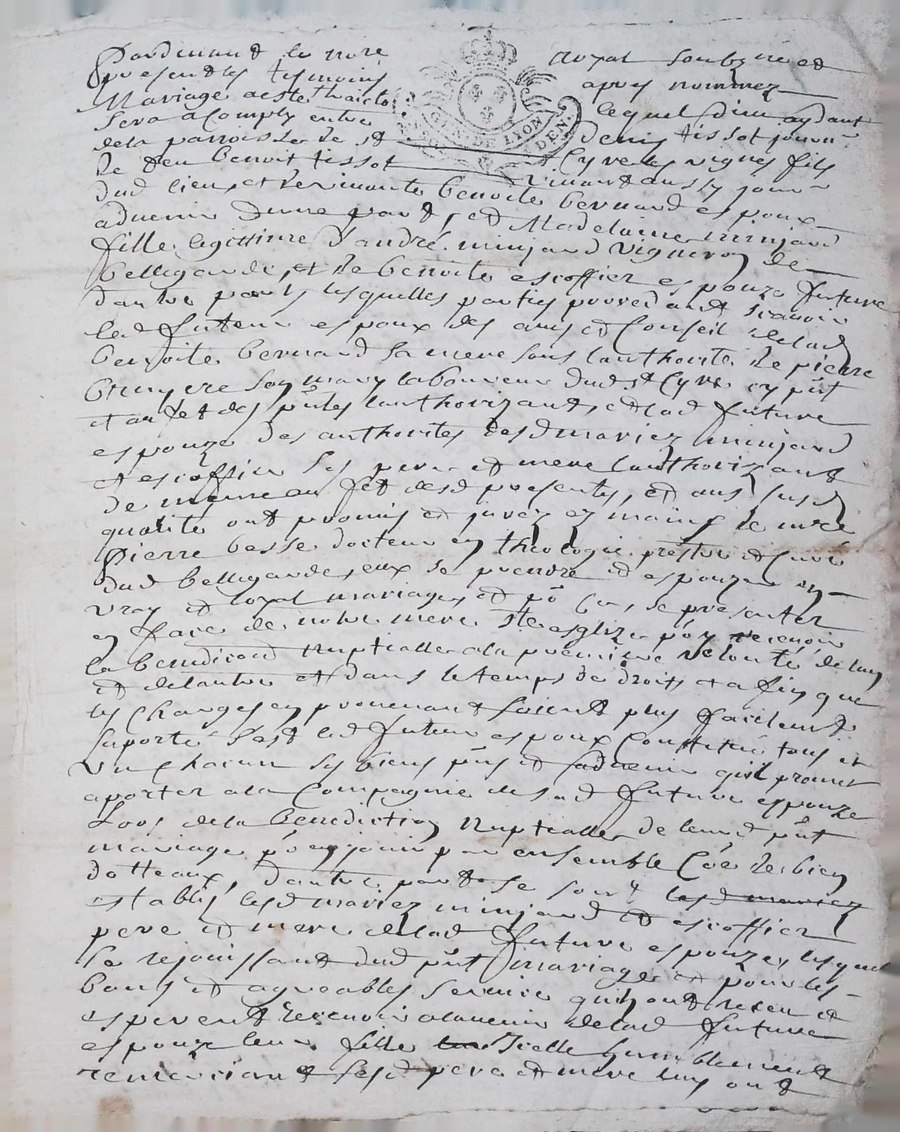 Pardevant le no.re royal soubz.né et
presents les tesmoins apres nommez
Mariage a esté traicté lequel dieu aydant
GEN. DE LYON DEN.
sera acomply entre Denis tissot journ.
de la parroisse de St Cyre les vignes fils
de feu benoit tissot vivant aussy journ.
dud lieu, et vivante benoite bernard espoux
advenir dune part, et Madelaine minjard
fille legitime d'andré minjard vigneron de
bellegarde, et de benoite escoffier espouze future
dautre part, lesquelles parties procedant sçavoir
led futeur espoux des avis et Conseil de lad
benoite bernard sa mere sous lauthorité de pierre
bruyere son mary laboureur dud St Cyre cy pnt
et au fet des pntes lauthorizant, et lad future
espouze des authorites desd mariez minjard
et escoffier ses pere et mere lauthorizant
de meme au fet desd presentes, et aux susd
qualité ont promis et jurez es mains de m.re
Pierre besse docteur en theologie prestre et curé
dud bellegarde, eux se prendre et espouzer en
vray et loyal mariage, et po.r ce, se presenter
en face de notre mere Ste esglize po.r y recevoir
la benediction nuptialle a la premiere volonté de lun
et delautre et dans le temps de droit, et afin que
les Charges en provenant soient plus facilem.t
suporté s'est led futeur espoux Constitué tous et
un chacun ses biens pnts et advenir quil promet
aporter a la Compagnie de sad future espouze
Lors de la benediction nuptialle de leurd pnt
mariage po.r en jouir par ensemble Coe de bien
dotteaux, dautre part se sont lesd mariez
establis lesd mariez minjard et escoffier
pere et mere de lad future espouze, lesquel
se rejouissant dud pnt mariage et pour les
bons et agreables service quils ont receu et
esperent recevoir a lavenir de lad future
espouze leur fille icelle humblement
remerciant sesd pere et mere luy ont